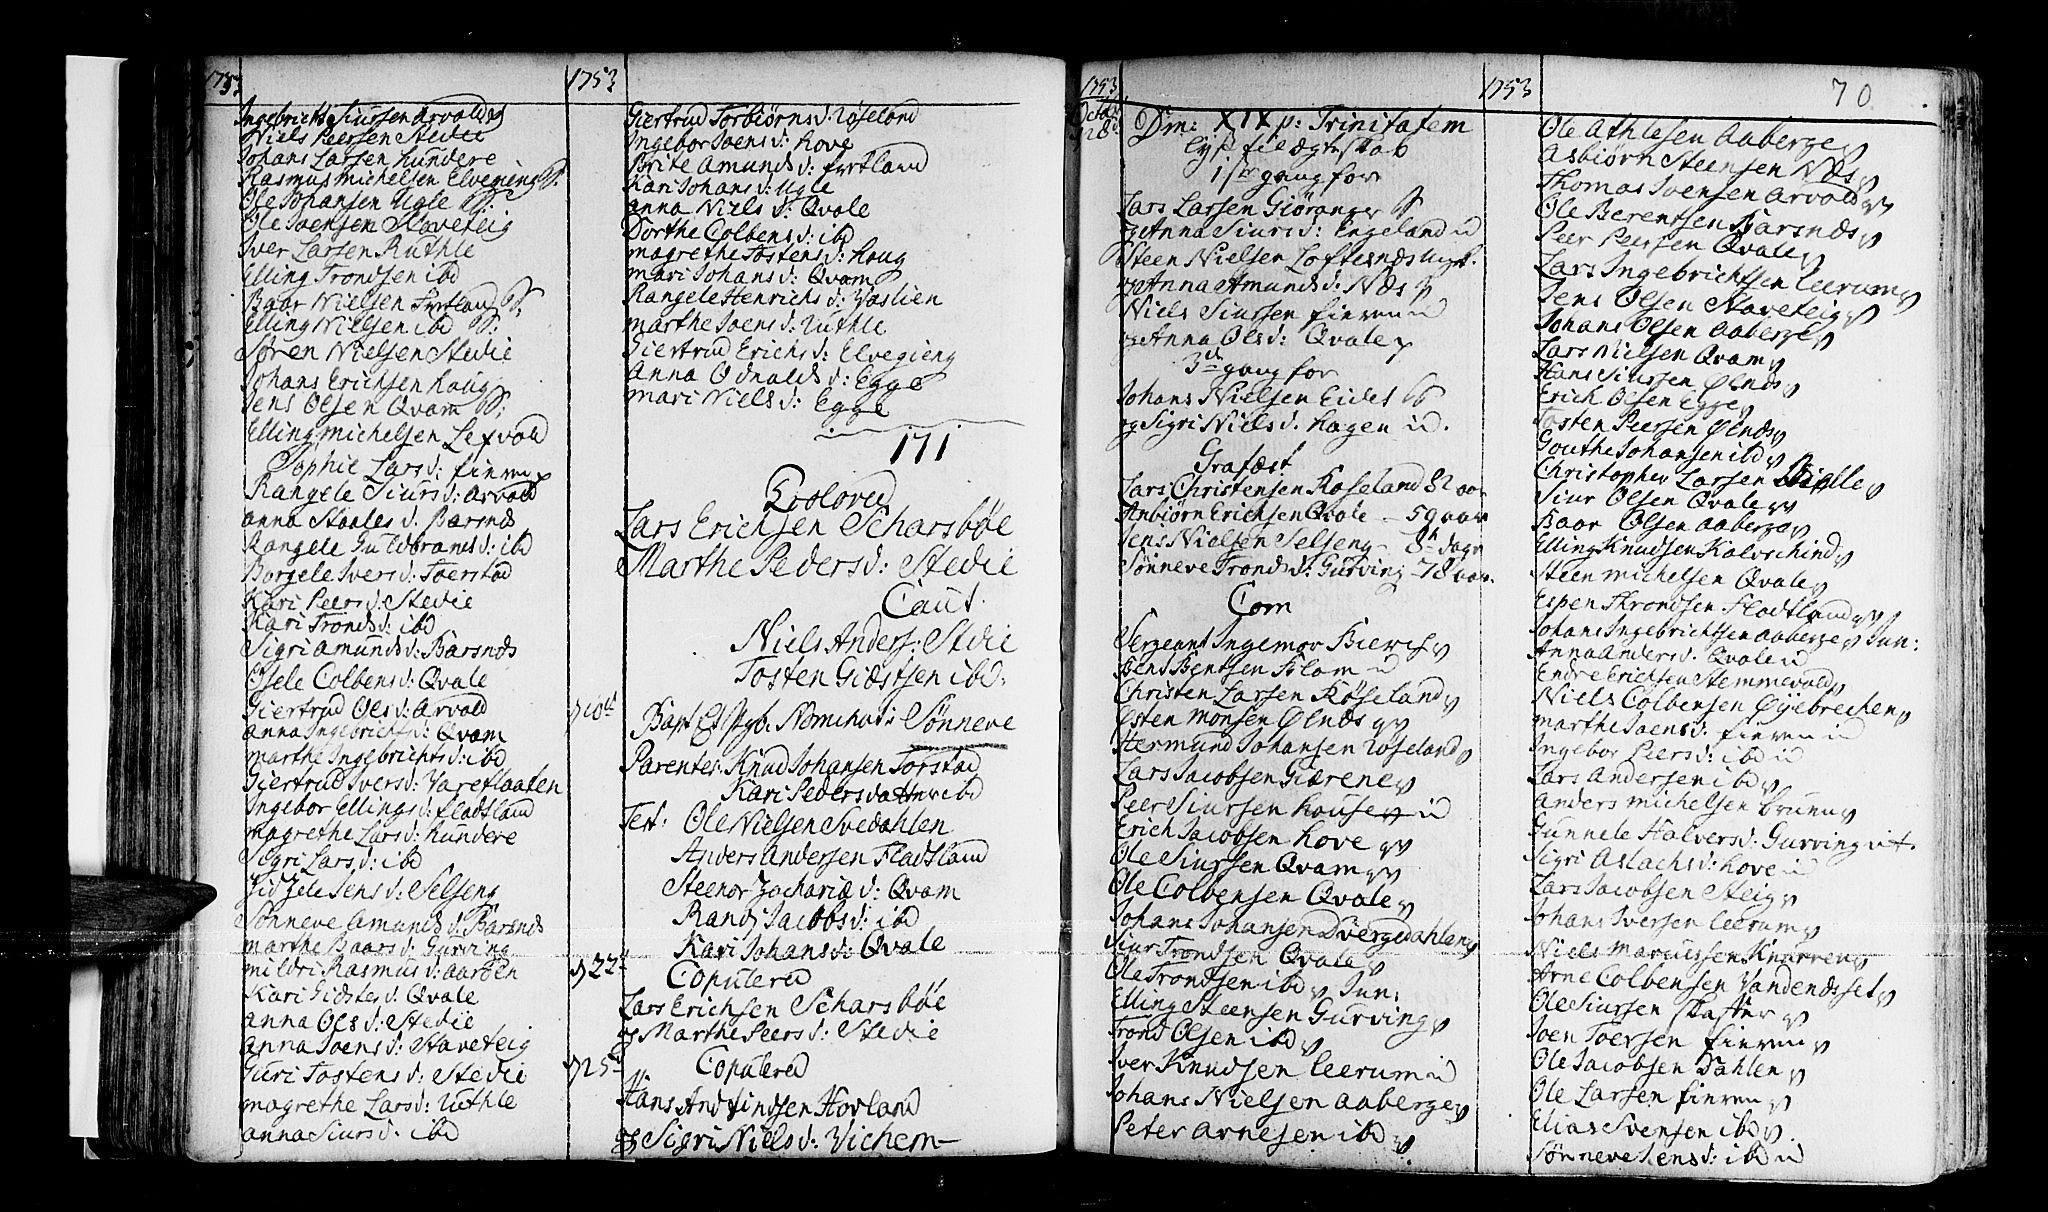 1753
Ingebricht Siursen Arvold
Niels Peersen Stedie
Johans Larsen Hundere
Rasmus Michelsen Elvegieng S.
Ole Johansen Ugle S.
Ole Joensen Staveteig
Iver Larsen Ruthle
Elling Trondsen ibd
Baar Nielsen Fretland S.
Elling Nielsen ibd S.
Søren Nielsen Stedie
Johans Erichsen Houg
Jens Olsen Qvam S.
Elling Michelsen Lexvold
Sophie Lars d: Finren
Rangele Siurs d: Arvold
Anna Staales d. Barsnæs
Rangele Guldbrands d: ibd
Borgele Ivers d: Foerstad
Kari Peers d: Stedie
Kari Tronds d: ibd
Sigri Amunds d: Barsnæs
Osele Colbens d: Qvale
Giertrud Ols d: Arvold
Anna Ingebrichts d: Qvam
Marthe Ingebrichts d: ibd
Giertrud Ivers d: Vareflaaten
Ingebor Ellings d: Fladtland
Magrethe Lars d: Hundere
Sigri Lars d: ibd
Jens d: Selseng
Sønneve Amunds d: Barsnæs
Marthe Baars d: Gurving
Mildri Rasmus d: Aarøen
Kari Giæsts d: Qvale
Anna Ols d: Stedie
Anna Joens d: Staveteig
Guri Tostens d: Stedie
Magrethe Lars d: Ruthle
Anna Siurs d: ibd
1753
Giertrud Torbiørns d: Røseland
Ingebor Joens d: Hove
Brite Amunds d: Fretland
Kari Johans d: Ugle
Anna Niels d: Qvale
Dorthe Colbens d: ibd
Magrethe Tostens d: Houg
Mari Johans d: Qvam
Rangele Henrichs d: Vaslien
Marthe Joens d: Ruthle
Giertrud Erichs d: Elvegieng
Anna Odnalds d: Egge
Mari Niels d: Egge
171
Troloved
Lars Erichsen Scharsbøe
Marthe Peders d: Stedie
Caut.
Niels Anders: Stedie
Tosten Giæstsen ibd.
Bapt Et Nomine Sønneve
Parentes Knud Johansen Torstad
Kari Peders datter ibd
Test: Ole Nielsen Svedahlen
Anders Andersen Fladtland
Steenor Zachariæ d: Qvam
Randi Jacobs d: ibd
Kari Johans d: Qvale
d 22
Copulered
Lars Erichsen Scharsbøe
og Marthe Peers d: Stedie
d 25
Copulered
Hans Andfindsen Hovland
og Sigri Niels d: Vichem
1753
Octobr
d 28
Dm: XIX p: Trinitatem
Lyst til Ægteskab
1ste gang for
Lars Larsen Giøranger S
og Anna Siurs d: Engeland u
Steen Nielsen Loftesnæs ugt.
og Anna Amunds d: Næs
Niels Siursen Finren u
og Anna Ols d: Qvale
3de gang for
Johans Nielsen Eidet S
og Sigri Niels d. Hagen u.
Grafæst
Lars Christensen Røseland 82 aar
Anbiørn Erichsen Qvale - 59 aar
Jens Nielsen Selseng - 8 dage
Sønneve Tronds d: Gurving - 78 aar.
Com
Sergeant Ingemor Biersch
Bent Bentsen Flom u
Christen Larsen Røseland
Østen Monsen Ølnæs
Hermund Johansen Røseland
Lars Jacobsen Giærene
Peer Siursen House u
Erich Jacobsen Hove
Ole Siursen Qvam
Ole Colbensen Qvale
Johans Johansen Dvergedahlen
Siur Trondsen Qvale
Ole Trondsen ibd Jun:
Elling Steensen Gurving
Trond Olsen ibd
Iver Knudsen Leerum u
Johans Nielsen Aaberge
Peter Arnesen ibd
1753
70
Ole Athlesen Aaberge
Asbiørn Steensen Næs
Thomas Joensen Arvold
Ole Berentsen Barsnæs
Peer Peersen Qvale
Lars Ingebrichtsen Leerum
Jens Olsen Staveteig
Johans Olsen Aaberge
Lars Nielsen Qvam
Hans Siursen Ølnæs
Erich Olsen Egge
Tosten Peersen Ølnæs
Gouthe Johansen ibd
Christopher Larsen
Siur Olsen Qvale
Baar Olsen Aaberge
Elling Knudsen Kalvschind
Steen Michelsen Qvale
Espen Throndsen Fladtland
Johans Ingebrichtsen Aaberge Jun:
Anna Anders d. Qvale u
Endre Erichsen Stemmevold
Niels Colbensen Øyebrechen
Marthe Joens d: Finren u
Ingebor Peers d: ibd u
Lars Andersen ibd
Anders Michelsen Bruun
Gunnele Halvers d: Gurving
Sigri Aslachs d: Hove u
Lars Jacobsen Steig
Johans Iversen Leerum
Niels Marcussen Knarren
Arne Colbensen Vandendsset
Ole Siursen Skafter
Joen Toersen Finren
Ole Jacobsen Dahlen
Ole Larsen Finren
Elias Svensen ibd
Sønneve Jens d: ibd u